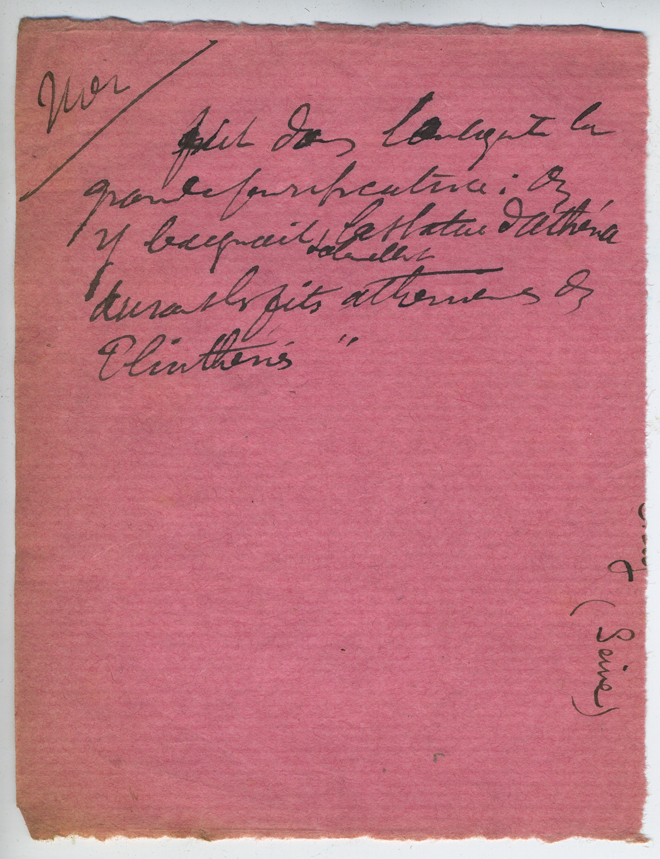 Mer
fut dans l'antiquité la
grande purificatrice : on
y baignait la statue d'Athéna
durant les fêtes athéniennes des
Plinthéries "
(Seine)